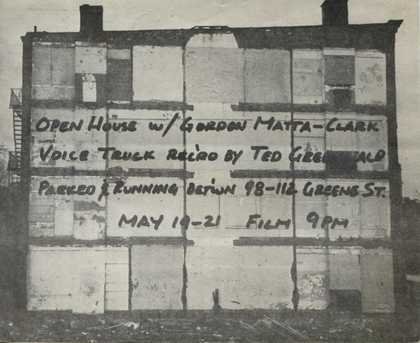 OPEN HOUSE W/ GORDON MATTA-CLARK
VOICE TRUCK REC'RD BY TED GREENWALD
PARKED & RUNNING BETWN 98-112 GREENE ST.
MAY 19-21 FILM 9PM